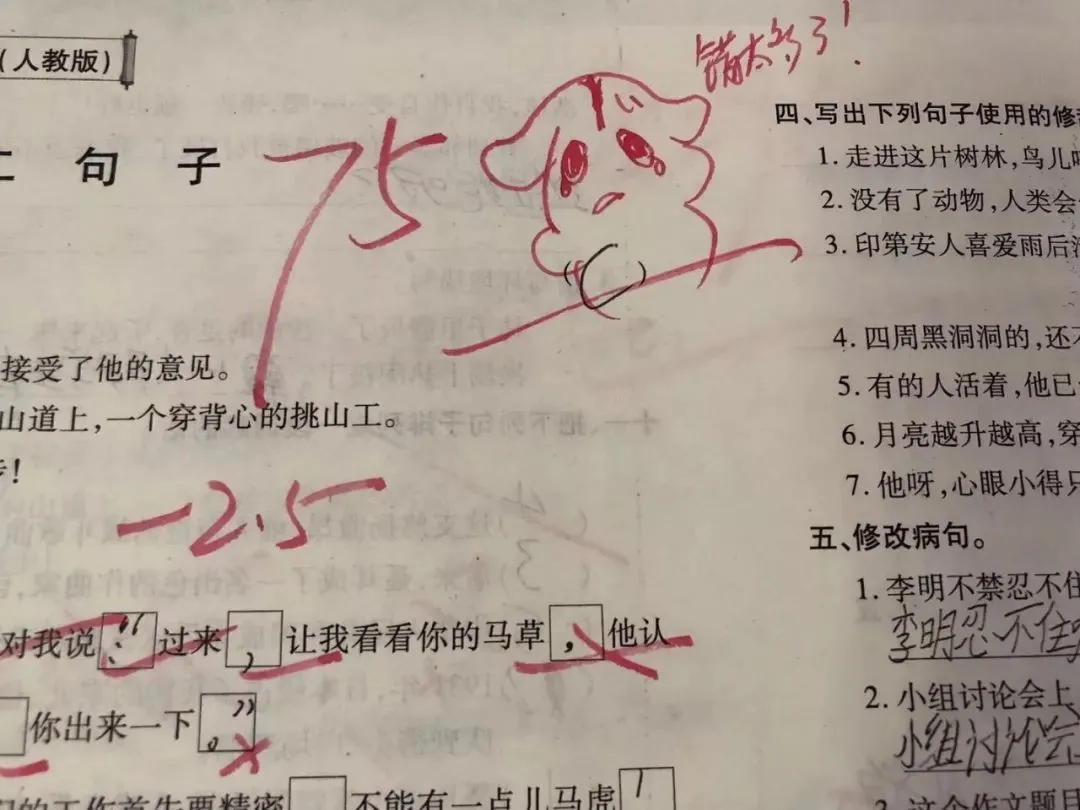 （人教版）
句子
75
错太多了！
接受了他的意见。
山道上，一个穿背心的挑山工。
！
-2.5
对我说：“过来，让我看看你的马草，他认
你出来一下。”
的工作首先要精密 不能有一点儿马虎
四、写出下列句子使用的修
1. 走进这片树林，鸟儿
2. 没有了动物，人类会
3. 印第安人喜爱雨后
4. 四周黑洞洞的，还
5. 有的人活着，他已
6. 月亮越升越高，穿
7. 他呀，心眼小得只
五、修改病句。
1. 李明不禁忍不住
李明忍不住
2. 小组讨论会上
小组讨论会
3. 这个作文题目